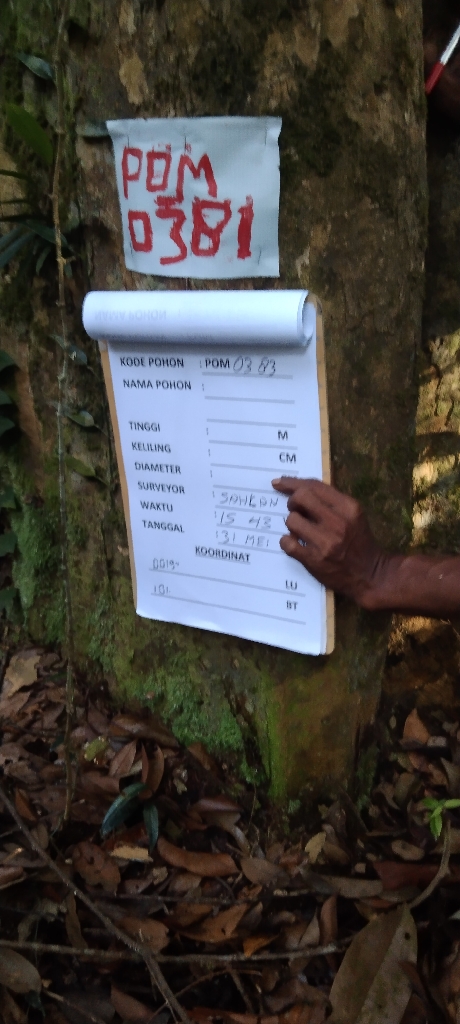 POM
0381
KODE POHON : POM 0383
NAMA POHON :
TINGGI : M
KELILING : CM
DIAMETER :
SURVEYOR : SAHLAN
WAKTU : 15 43
TANGGAL : 31 MEI
KOORDINAT
0019° LU
101 BT